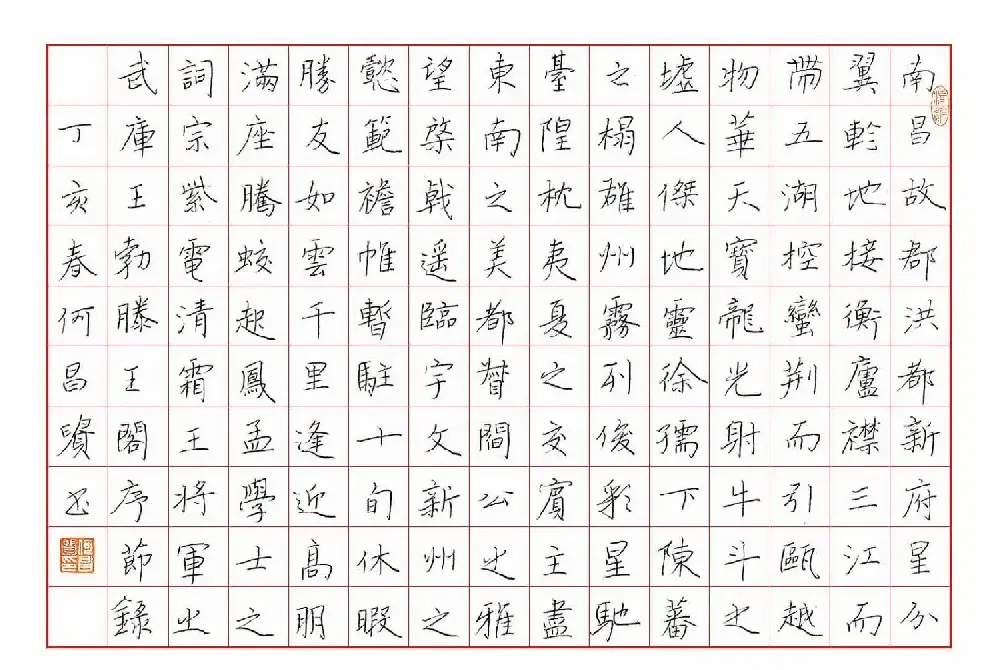 南昌故郡洪都新府星分
翼軫地接衡廬襟三江而
帶五湖控蠻荆而引甌越
物華天寶龍光射牛斗之
墟人傑地靈徐孺下陳蕃
之榻雄州霧列俊彩星馳
臺隍枕夷夏之交賓主盡
東南之美都督閻公之雅
望棨戟遥臨宇文新州之
懿範襜帷暫駐十旬休暇
勝友如雲千里逢近高朋
滿座騰蛟起鳳孟學士之
詞宗紫電清霜王將軍之
武庫王勃滕王閣序節録
丁亥春何昌賢书